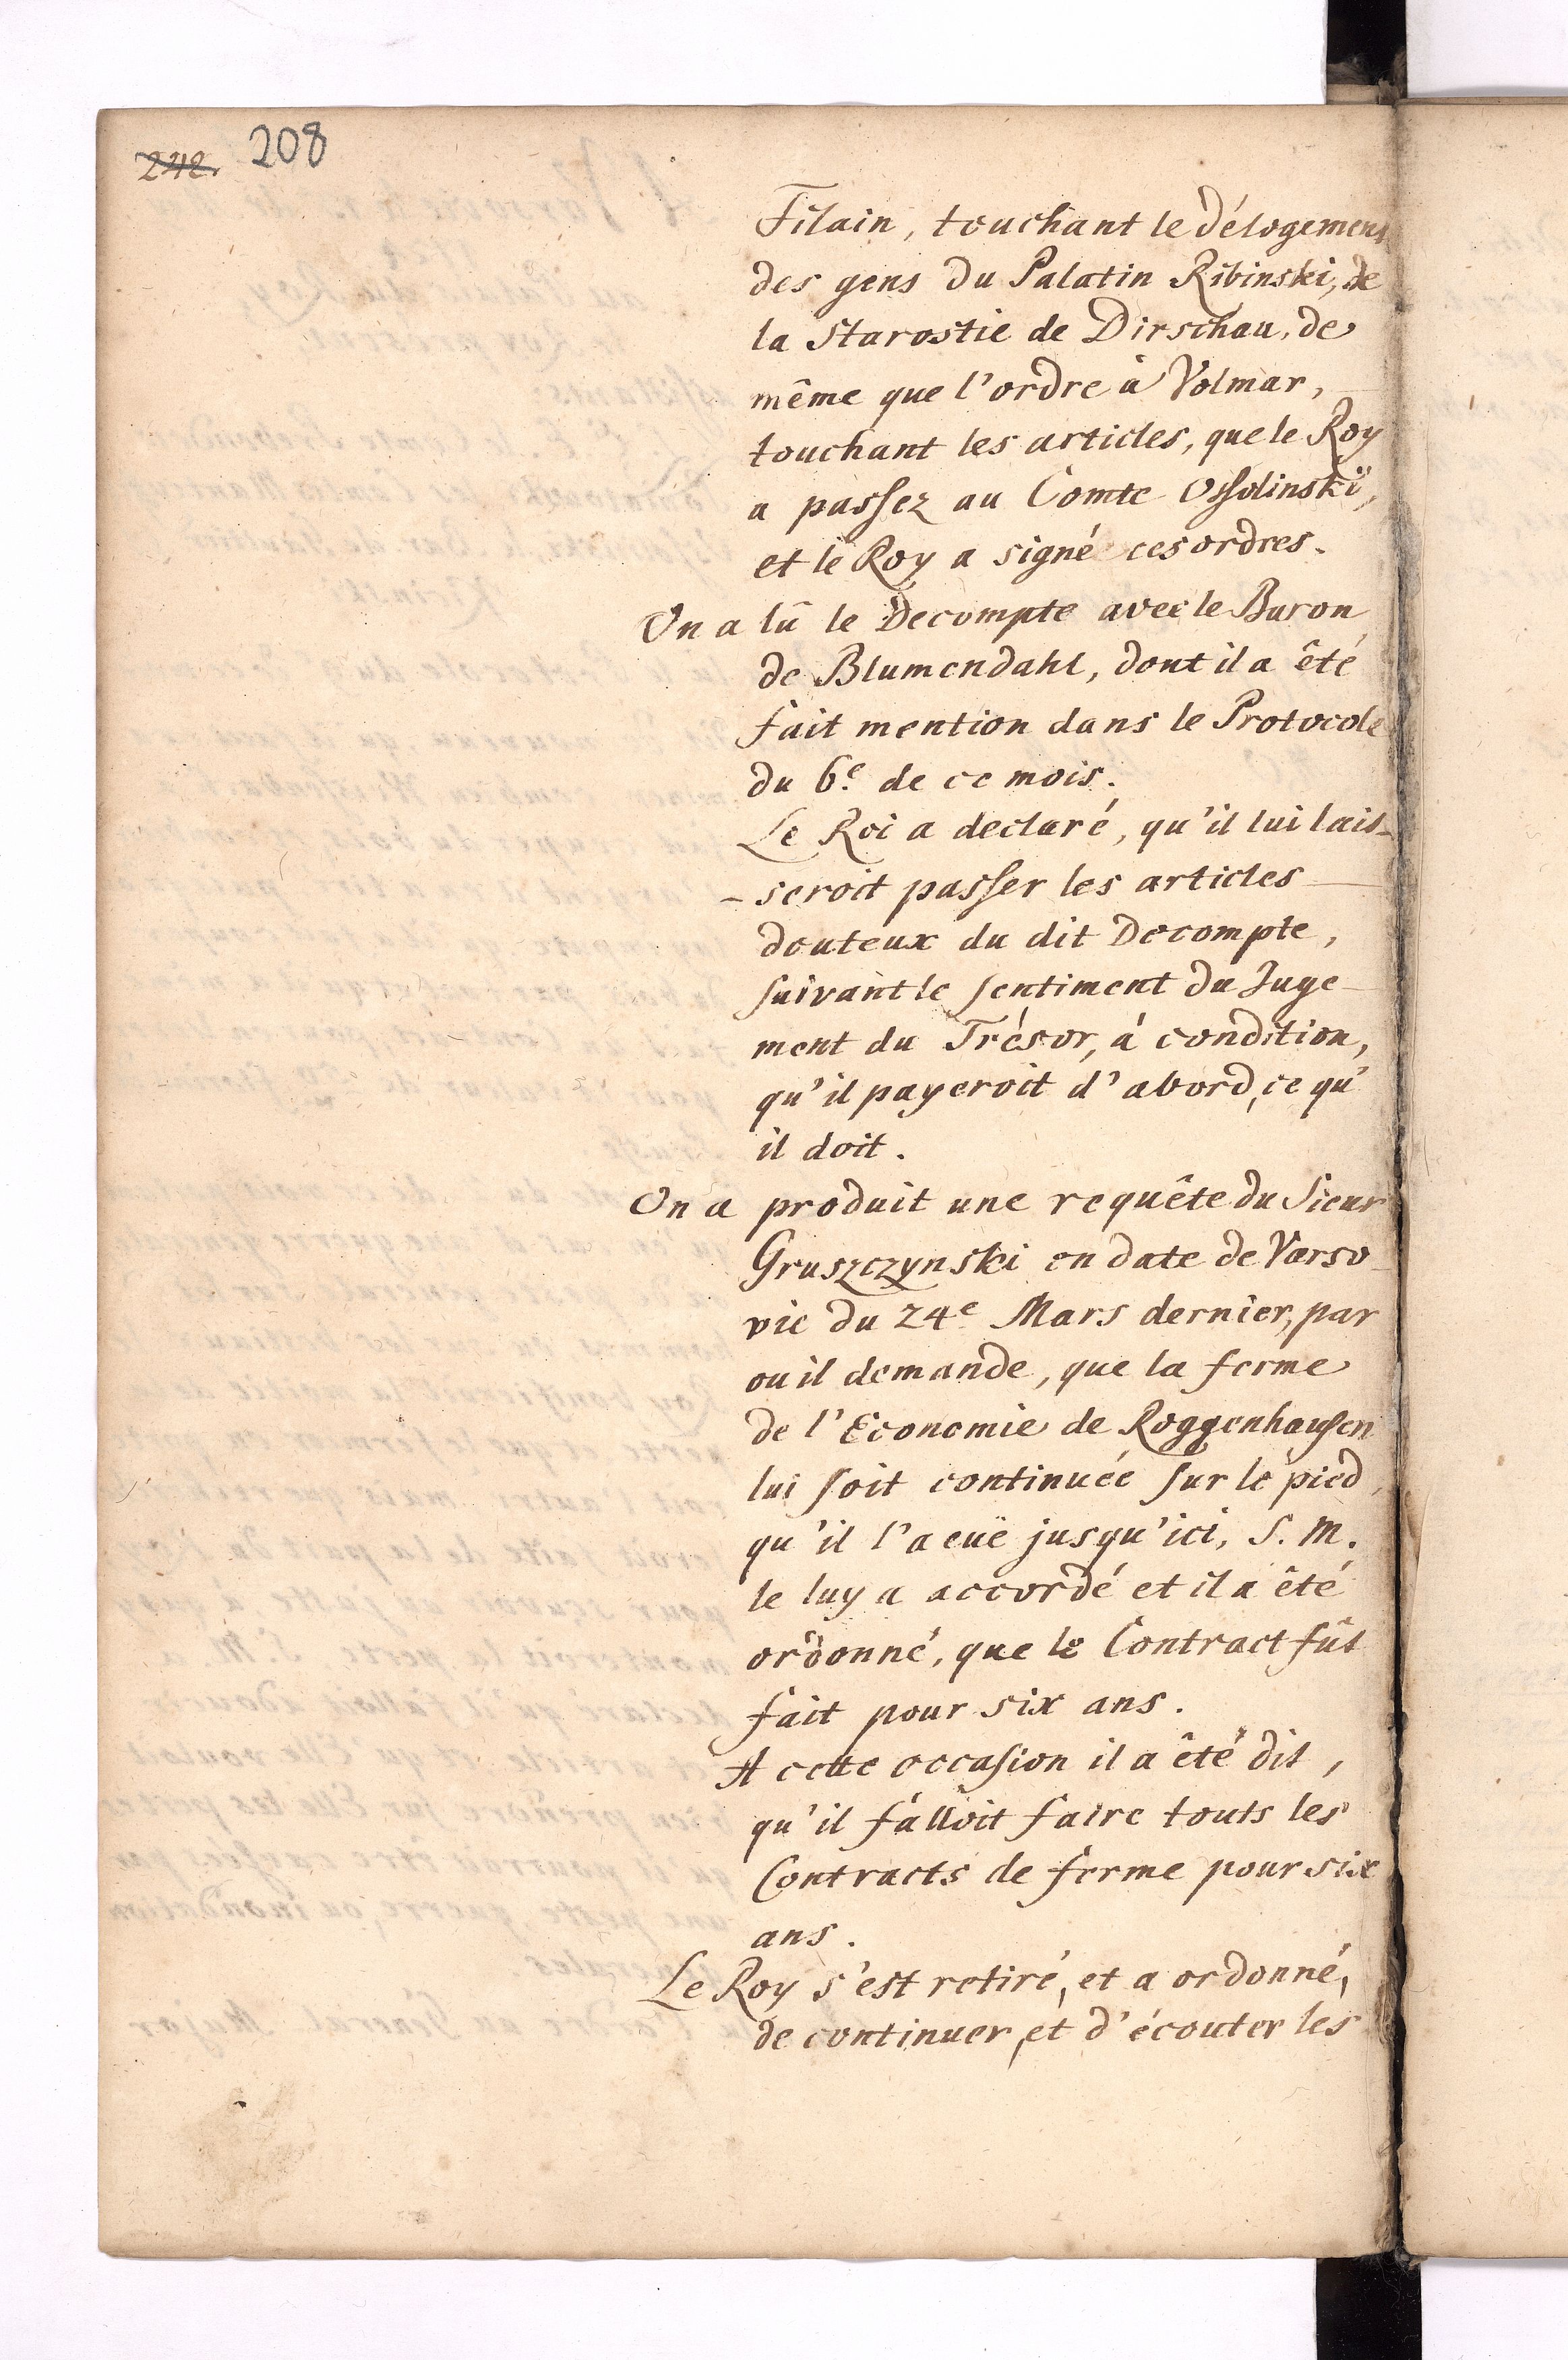 242. 208
Filain, touchant le délogement
des gens du Palatin Ribinski, de
la Starostie de Dirschau, de
même que l'ordre à Volmar,
touchant les articles, que le Roy
a passez au Comte Ossolinski,
et le Roy a signé ces ordres.
On a lû le Decompte avec le Baron
de Blumendahl, dont il a êté
fait mention dans le Protocole
du 6e. de ce mois.
Le Roi a declaré, qu'il lui lais-
-seroit passer les articles
douteux du dit Decompte,
suivant le sentiment du Juge-
ment du Trésor, à condition,
qu'il payeroit d'abord, ce qu'
il doit.
On a produit une requête du Sieur
Gruszczynski en date de Varso-
vie du 24e. Mars dernier, par
ou il demande, que la ferme
de l'Economie de Roggenhausen
lui soit continuée sur le pied,
qu'il l'a euë jusqu'ici, S. M.
le luy a accordé et il a êté
ordonné, que le Contract fût
fait pour six ans.
A cette occasion il a êté dit,
qu'il falloit faire touts les
Contracts de ferme pour six
ans.
Le Roy s'est retiré, et a ordonné,
de continuer, et d'écouter les